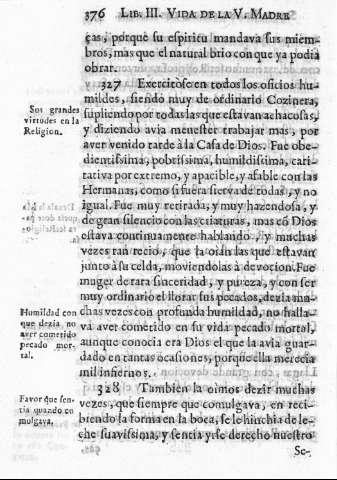 376 LIB. III. VIDA DE LA V. MADRE
ças, porque su espiritu mandava sus miem-
bros, mas que el natural brio con que ya podia
obrar.
327 Exercitòse en todos los oficios hu-
mildes, siendo muy de ordinario Cozinera,
supliendo por todas las que estavan achacosas,
y diziendo avia menester trabajar mas, por
aver venido tarde à la Casa de Dios. Fue obe-
dientissima, pobrissima, humildissima, cari-
tativa por extremo, y apacible, y afable con las
Hermanas, como si fuera sierva de todas, y no
igual. Fue muy retirada, y muy hazendosa, y
de gran silencio con las criaturas, mas cõ Dios
estava continuamente hablando, y muchas
vezes tan recio, que la oìan las que estavan
junto à su celda, moviendolas à devocion. Fue
muger de rara sinceridad, y pureza, y con ser
muy ordinario el llorar sus pecados, dezia mu-
chas vezes con profunda humildad, no halla-
va aver cometido en su vida pecado mortal,
aunque conocia era Dios el que la avia guar-
dado en tantas ocasiones, porque ella merecia
mil infiernos.
328 Tambien la oimos dezir muchas
vezes, que siempre que comulgava, en reci-
biendo la forma en la boca, se le hinchia de le-
che suavissima, y sentia yrse derecho nuestro
Se-
Sus grandes
virtudes en la
Religion.
Humildad con
que dezia no
aver cometido
pecado mor-
tal.
Favor que sen-
tia quando co
mulgava.